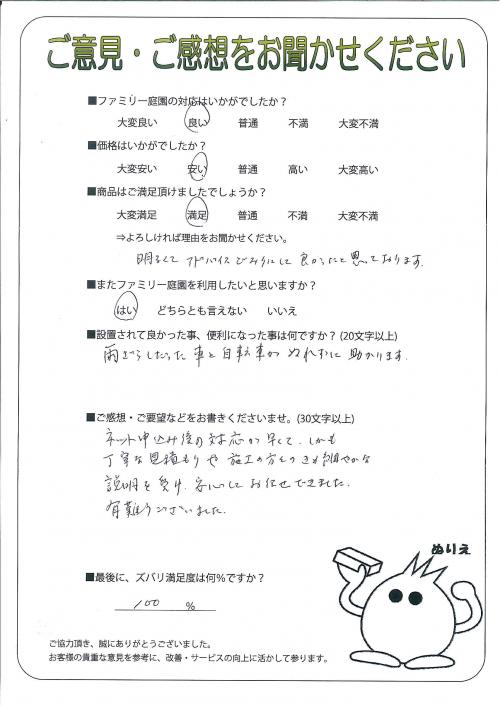 ご意見・ご感想をお聞かせください
■ファミリー庭園の対応はいかがでしたか？
大変良い 良い 普通 不満 大変不満
■価格はいかがでしたか？
大変安い 安い 普通 高い 大変高い
■商品はご満足頂けましたでしょうか？
大変満足 満足 普通 不満 大変不満
⇒よろしければ理由をお聞かせください。
明るくて アドバイス 良かったと思っております。
■またファミリー庭園を利用したいと思いますか？
はい どちらとも言えない いいえ
■設置されて良かった事、便利になった事は何ですか？(20文字以上)
雨ざらしだった 車と自転車が ぬれずに 助かります。
■ご感想・ご要望などをお書きくださいませ。(30文字以上)
ネット申込み後の対応が早くて、しかも
丁寧な見積もりや 施工の方の きめ細やかな
説明を受け、安心して お任せできました。
有難うございました。
ぬりえ
■最後に、ズバリ満足度は何%ですか？
100 %
ご協力頂き、誠にありがとうございました。
お客様の貴重な意見を参考に、改善・サービスの向上に活かして参ります。